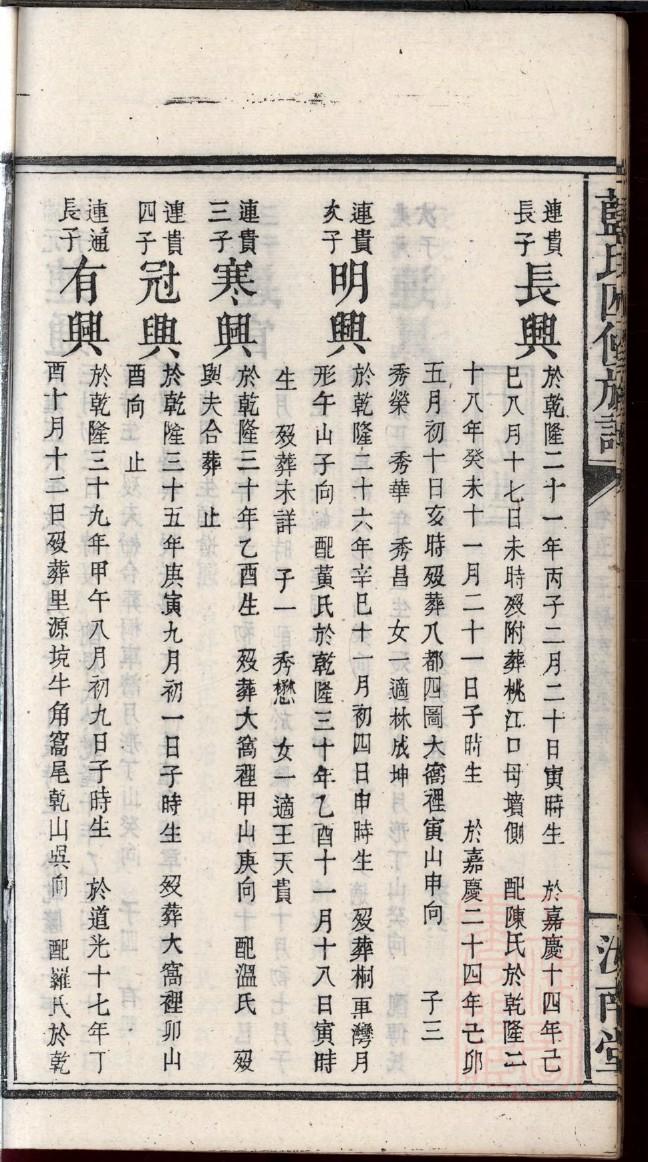 藍氏四修族譜
汝南堂
連貴
長子
長興
於乾隆二十一年丙子二月二十日寅時生 於嘉慶十四年己
巳八月十七日未時歿附葬桃江口母墳側 配陳氏於乾隆二
十八年癸未十一月二十一日子時生 於嘉慶二十四年己卯
五月初十日亥時歿葬八都四圖大窩裡寅山申向 子三
秀榮 秀華 秀昌 女一適林成坤
連貴
次子
明興
於乾隆二十六年辛巳十一月初四日申時生 歿葬桐車灣月
形午山子向 配黃氏於乾隆三十年乙酉十一月十八日寅時
生 歿葬未詳 子一 秀懋 女一適王天貴
連貴
三子
寒興
於乾隆三十年乙酉生 歿葬大窩裡甲山庚向 配溫氏 歿
與夫合葬 止
連貴
四子
冠興
於乾隆三十五年庚寅九月初一日子時生 歿葬大窩裡卯山
酉向 止
連通
長子
有興
於乾隆三十九年甲午八月初九日子時生 於道光十七年丁
酉十月十二日歿葬里源境牛角窩尾乾山巽向 配羅氏於乾